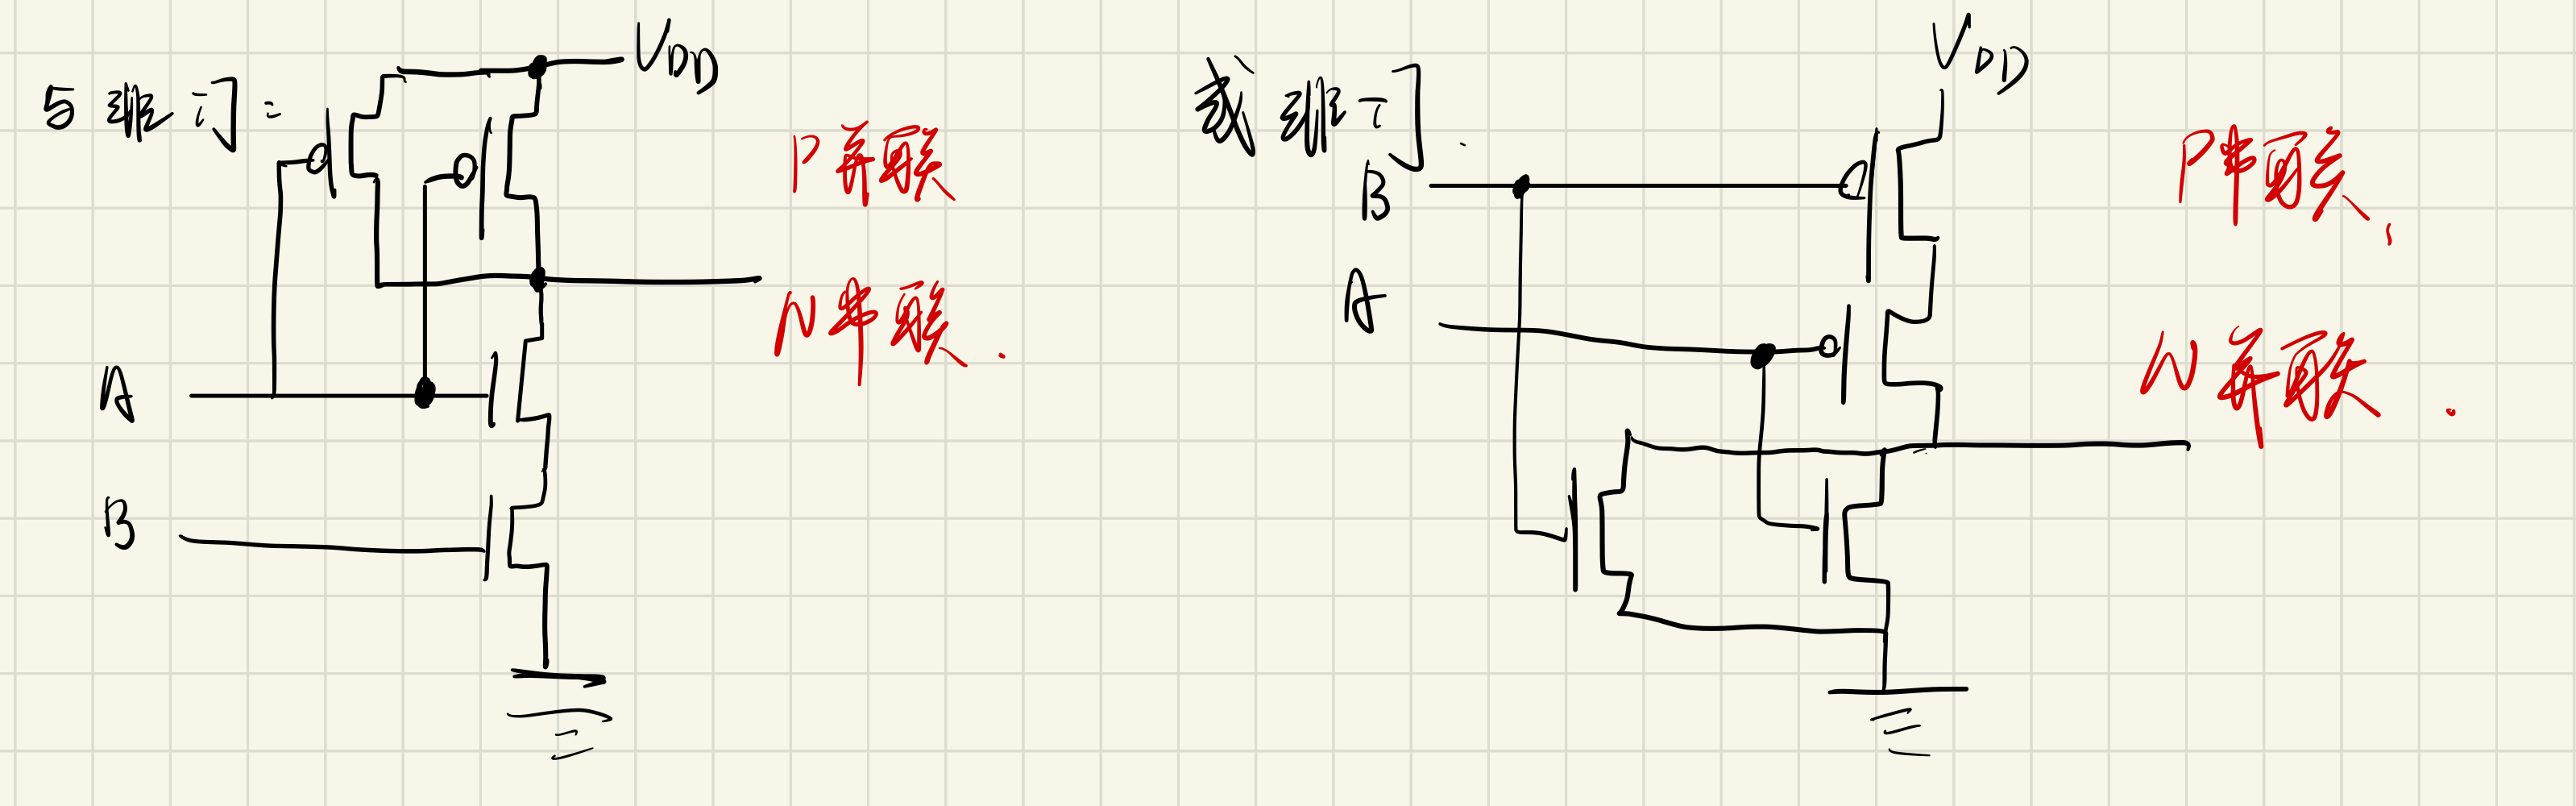 与非门:
VDD
P并联
N串联.
A
B
或非门.
VDD
B
A
P串联,
N并联.